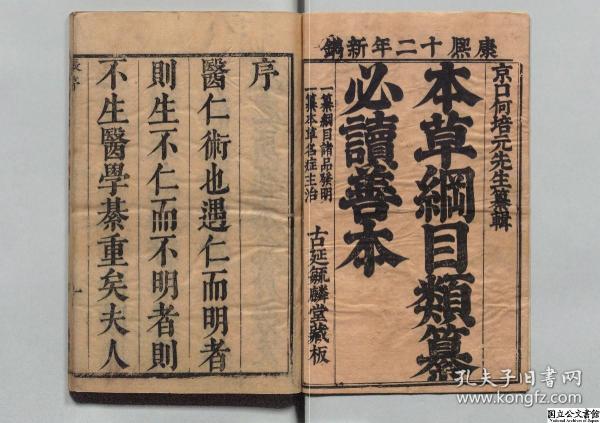 康熙十二年新鐫
京口何培元先生纂輯
本草綱目類纂
必讀善本
一纂綱目諸品發明
一纂本草名症主治
古延毓麟堂藏板
序
醫仁術也遇仁而明者
則生不仁而不明者則
不生醫學綦重矣夫人
孔夫子旧书网
www.kongfz.com
国立公文書館
National Archives of Japan